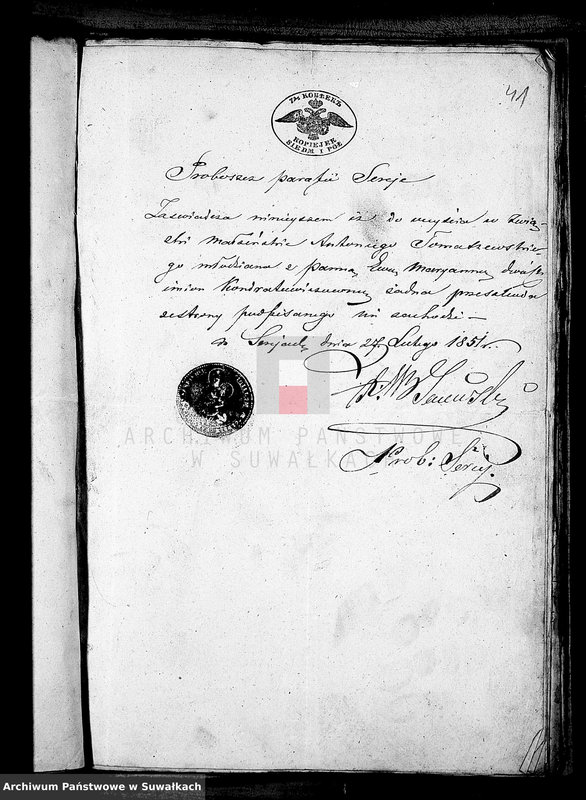 41
7½ КОПѢЕКЪ
KOPIEJEK
SIEDM I PÓŁ
Proboszcz parafii Sereje
Zaświadcza niniejszem iż do wejścia w związ-
ki małżeńskie Antoniego Tomaszewskie-
go młodziana z panną Ewą Maryanną dwojga
imion Kondratowiczówną żadna przeszkoda
ze strony podpisanego nie zachodzi —
w Serejach dnia 27 Lutego 1851 r.
Prob: Serej.
ARCHIWUM PAŃSTWOWE
W SUWAŁKACH
Archiwum Państwowe w Suwałkach